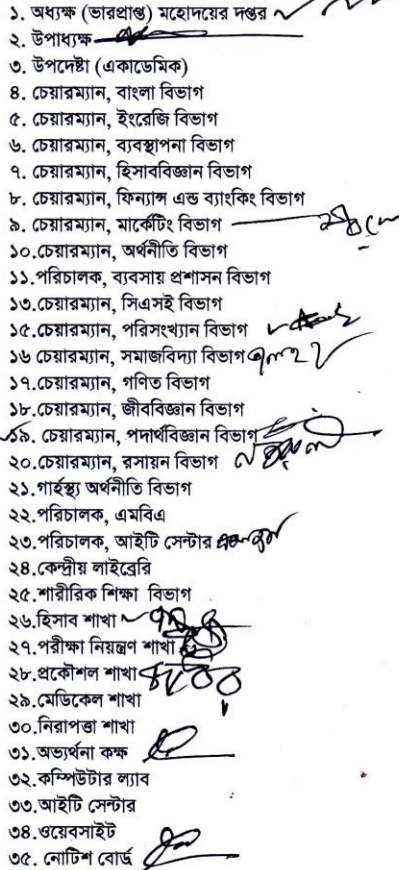 ১. অধ্যক্ষ (ভারপ্রাপ্ত) মহোদয়ের দপ্তর
২. উপাধ্যক্ষ
৩. উপদেষ্টা (একাডেমিক)
৪. চেয়ারম্যান, বাংলা বিভাগ
৫. চেয়ারম্যান, ইংরেজি বিভাগ
৬. চেয়ারম্যান, ব্যবস্থাপনা বিভাগ
৭. চেয়ারম্যান, হিসাববিজ্ঞান বিভাগ
৮. চেয়ারম্যান, ফিন্যান্স এন্ড ব্যাংকিং বিভাগ
৯. চেয়ারম্যান, মার্কেটিং বিভাগ
১০.চেয়ারম্যান, অর্থনীতি বিভাগ
১১.পরিচালক, ব্যবসায় প্রশাসন বিভাগ
১৩.চেয়ারম্যান, সিএসই বিভাগ
১৫.চেয়ারম্যান, পরিসংখ্যান বিভাগ
১৬ চেয়ারম্যান, সমাজবিদ্যা বিভাগ
১৭.চেয়ারম্যান, গণিত বিভাগ
১৮.চেয়ারম্যান, জীববিজ্ঞান বিভাগ
১৯. চেয়ারম্যান, পদার্থবিজ্ঞান বিভাগ
২০.চেয়ারম্যান, রসায়ন বিভাগ
২১.গার্হস্থ্য অর্থনীতি বিভাগ
২২.পরিচালক, এমবিএ
২৩.পরিচালক, আইটি সেন্টার
২৪.কেন্দ্রীয় লাইব্রেরি
২৫.শারীরিক শিক্ষা বিভাগ
২৬.হিসাব শাখা
২৭.পরীক্ষা নিয়ন্ত্রণ শাখা
২৮.প্রকৌশল শাখা
২৯.মেডিকেল শাখা
৩০.নিরাপত্তা শাখা
৩১.অভ্যর্থনা কক্ষ
৩২.কম্পিউটার ল্যাব
৩৩.আইটি সেন্টার
৩৪.ওয়েবসাইট
৩৫. নোটিশ বোর্ড